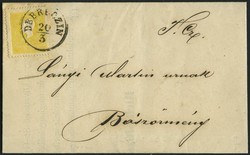 DEBRECZIN
20
3
T. Cz.
Sányi Martin urnak
Böszörmény